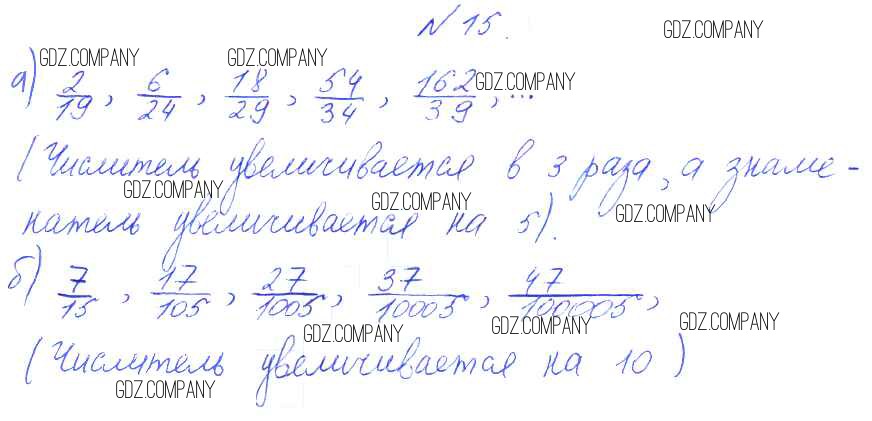 № 15. GDZ.COMPANY
GDZ.COMPANY GDZ.COMPANY
а) 2/19, 6/24, 18/29, 54/34, 162/39, ... GDZ.COMPANY
(Числитель увеличивается в 3 раза, а знаме-
GDZ.COMPANY GDZ.COMPANY GDZ.COMPANY
натель увеличивается на 5).
б) 7/15, 17/105, 27/1005, 37/10005, 47/100005,
GDZ.COMPANY GDZ.COMPANY GDZ.COMPANY
(Числитель увеличивается на 10)
GDZ.COMPANY